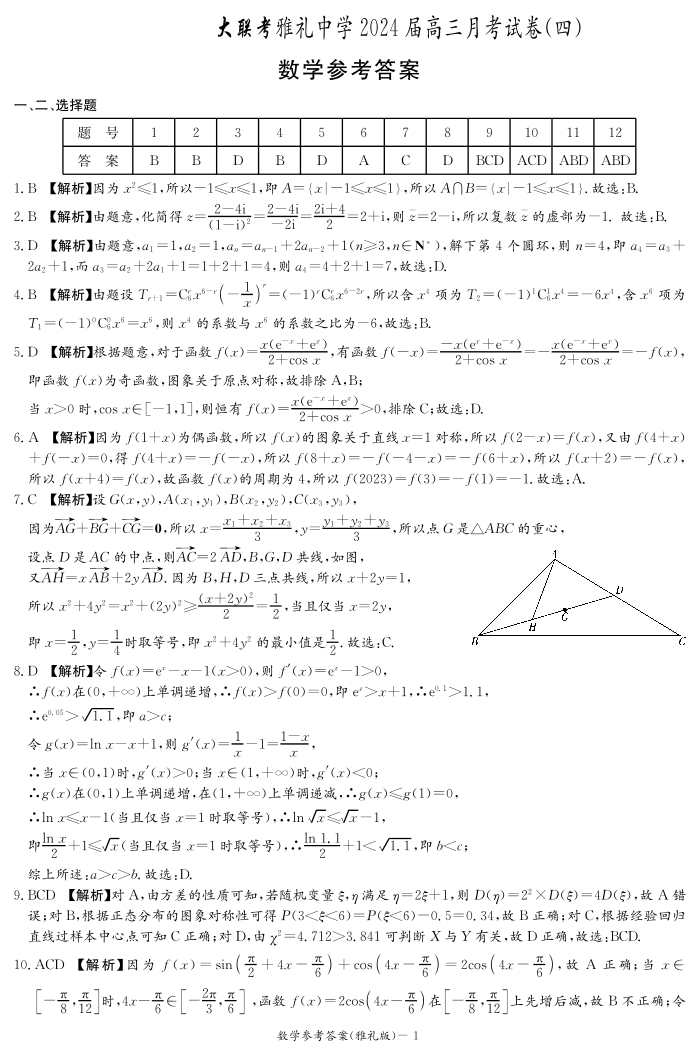 大联考雅礼中学 2024 届高三月考试卷(四)
数学参考答案
一、二、选择题
题 号 1 2 3 4 5 6 7 8 9 10 11 12
答 案 B B D B D A C D BCD ACD ABD ABD
1. B 【解析】因为 x²≤1,所以−1≤x≤1,即 A={x|−1≤x≤1},所以 A∩B={x|−1≤x≤1}. 故选:B.
2. B 【解析】由题意,化简得 z=(2−4i)/(1−i)²=(2−4i)/(−2i)=(2i+4)/2=2+i,则 z̄=2−i,所以复数 z̄ 的虚部为−1. 故选:B.
3. D 【解析】由题意,a₁=1,a₂=1,aₙ=aₙ₋₁+2aₙ₋₂+1(n≥3,n∈N*),解下第 4 个圆环,则 n=4,即 a₄=a₃+
2a₂+1,而 a₃=a₂+2a₁+1=1+2+1=4,则 a₄=4+2+1=7,故选:D.
4. B 【解析】由题设 Tᵣ₊₁=C₆ʳx⁶⁻ʳ(−1/x)ʳ=(−1)ʳC₆ʳx⁶⁻²ʳ,所以含 x⁴ 项为 T₂=(−1)¹C₆¹x⁴=−6x⁴,含 x⁶ 项为
T₁=(−1)⁰C₆⁰x⁶=x⁶,则 x⁴ 的系数与 x⁶ 的系数之比为−6,故选:B.
5. D 【解析】根据题意,对于函数 f(x)=x(e⁻ˣ+eˣ)/(2+cos x),有函数 f(−x)=−x(eˣ+e⁻ˣ)/(2+cos x)=−x(e⁻ˣ+eˣ)/(2+cos x)=−f(x),
即函数 f(x)为奇函数,图象关于原点对称,故排除 A,B;
当 x>0 时,cos x∈[−1,1],则恒有 f(x)=x(e⁻ˣ+eˣ)/(2+cos x)>0,排除 C;故选:D.
6. A 【解析】因为 f(1+x)为偶函数,所以 f(x)的图象关于直线 x=1 对称,所以 f(2−x)=f(x),又由 f(4+x)
+f(−x)=0,得 f(4+x)=−f(−x),所以 f(8+x)=−f(−4−x)=−f(6+x),所以 f(x+2)=−f(x),
所以 f(x+4)=f(x),故函数 f(x)的周期为 4,所以 f(2023)=f(3)=−f(1)=−1. 故选:A.
7. C 【解析】设 G(x,y),A(x₁,y₁),B(x₂,y₂),C(x₃,y₃),
因为AG→+BG→+CG→=0,所以 x=(x₁+x₂+x₃)/3,y=(y₁+y₂+y₃)/3,所以点 G 是△ABC 的重心,
设点 D 是 AC 的中点,则AC→=2 AD→,B,G,D 共线,如图,
又AH→=x AB→+2y AD→. 因为 B,H,D 三点共线,所以 x+2y=1,
所以 x²+4y²=x²+(2y)²≥(x+2y)²/2=1/2,当且仅当 x=2y,
即 x=1/2,y=1/4时取等号,即 x²+4y² 的最小值是1/2. 故选:C.
D
H
G
B
C
8. D 【解析】令 f(x)=eˣ−x−1(x>0),则 f′(x)=eˣ−1>0,
∴f(x)在(0,+∞)上单调递增,∴f(x)>f(0)=0,即 eˣ>x+1,∴e⁰·¹>1.1,
∴e⁰·⁰⁵>√1.1,即 a>c;
令 g(x)=ln x−x+1,则 g′(x)=1/x−1=(1−x)/x,
∴当 x∈(0,1)时,g′(x)>0;当 x∈(1,+∞)时,g′(x)<0;
∴g(x)在(0,1)上单调递增,在(1,+∞)上单调递减,∴g(x)≤g(1)=0,
∴ln x≤x−1(当且仅当 x=1 时取等号),∴ln √x≤√x−1,
即(ln x)/2+1≤√x(当且仅当 x=1 时取等号),∴(ln 1.1)/2+1<√1.1,即 b<c;
综上所述:a>c>b. 故选:D.
9. BCD 【解析】对 A,由方差的性质可知,若随机变量 ξ,η 满足 η=2ξ+1,则 D(η)=2²×D(ξ)=4D(ξ),故 A 错
误;对 B,根据正态分布的图象对称性可得 P(3<ξ<6)=P(ξ<6)−0.5=0.34,故 B 正确;对 C,根据经验回归
直线过样本中心点可知 C 正确;对 D,由 χ²=4.712>3.841 可判断 X 与 Y 有关,故 D 正确,故选:BCD.
10. ACD 【解析】因为 f(x)=sin(π/2+4x−π/6)+cos(4x−π/6)=2cos(4x−π/6),故 A 正确;当 x∈
[−π/8,π/12]时,4x−π/6∈[−2π/3,π/6],函数 f(x)=2cos(4x−π/6)在[−π/8,π/12]上先增后减,故 B 不正确;令
数学参考答案(雅礼版)− 1